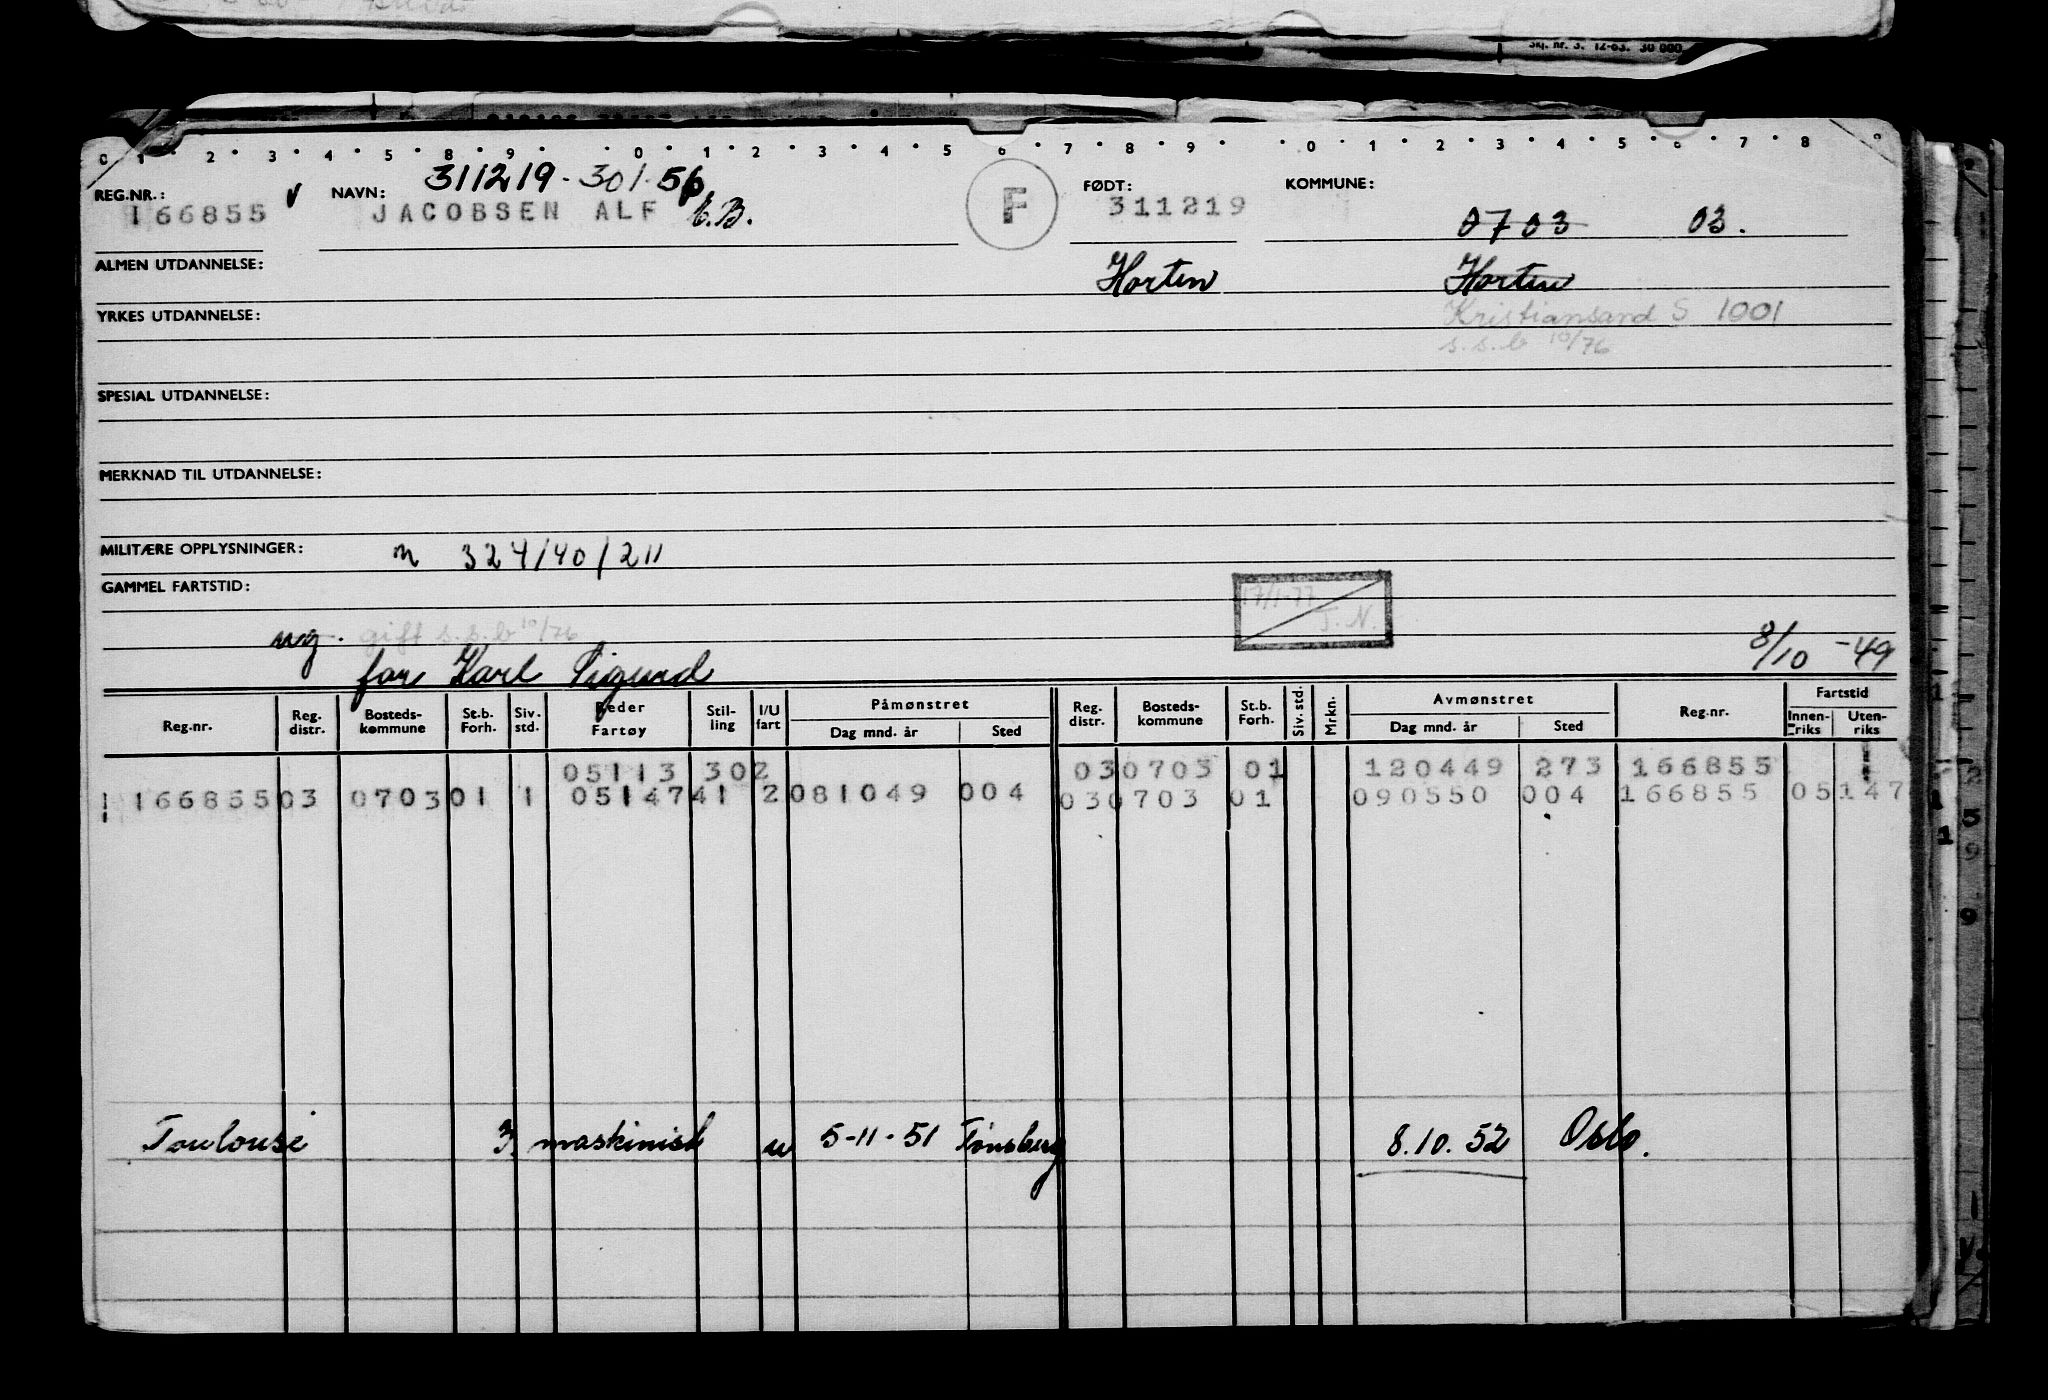 Skj. nr. 3. 12-63. 30 000
0 1 2 3 4 5 8 9 0 1 2 3 4 5 6 7 8 9 0 1 2 3 4 5 6 7 8 9
311219-301.56
REG.NR.: NAVN: FØDT: KOMMUNE:
166855 v JACOBSEN ALF F 311219 0703 03.
ALMEN UTDANNELSE: Horten Horten
YRKES UTDANNELSE: Kristiansand S 1001
s.s.b 10/76
SPESIAL UTDANNELSE:
MERKNAD TIL UTDANNELSE:
MILITÆRE OPPLYSNINGER: n 324/40/211
GAMMEL FARTSTID:
17/1-77
T.N.
ug. gift s.s.b 10/76
far Karl Sigurd 8/10 -49
Reg.nr. Reg. distr. Bosteds- kommune St.b. Forh. Siv. std. Reder Fartøy Stil- ling I/U fart Påmønstret Dag mnd. år Sted Reg. distr. Bosteds- kommune St.b. Forh. Siv. std. Mrkn. Avmønstret Dag mnd. år Sted Reg.nr. Fartstid Innen- riks Uten- riks
05113 302 03 0703 01 120449 273 166855
166855 03 0703 01 1 05147 41 2 081049 004 03 0703 01 090550 004 166855 05 147
Toulouse 3. maskinist u 5-11-51 Tønsberg 8.10.52 Oslo.